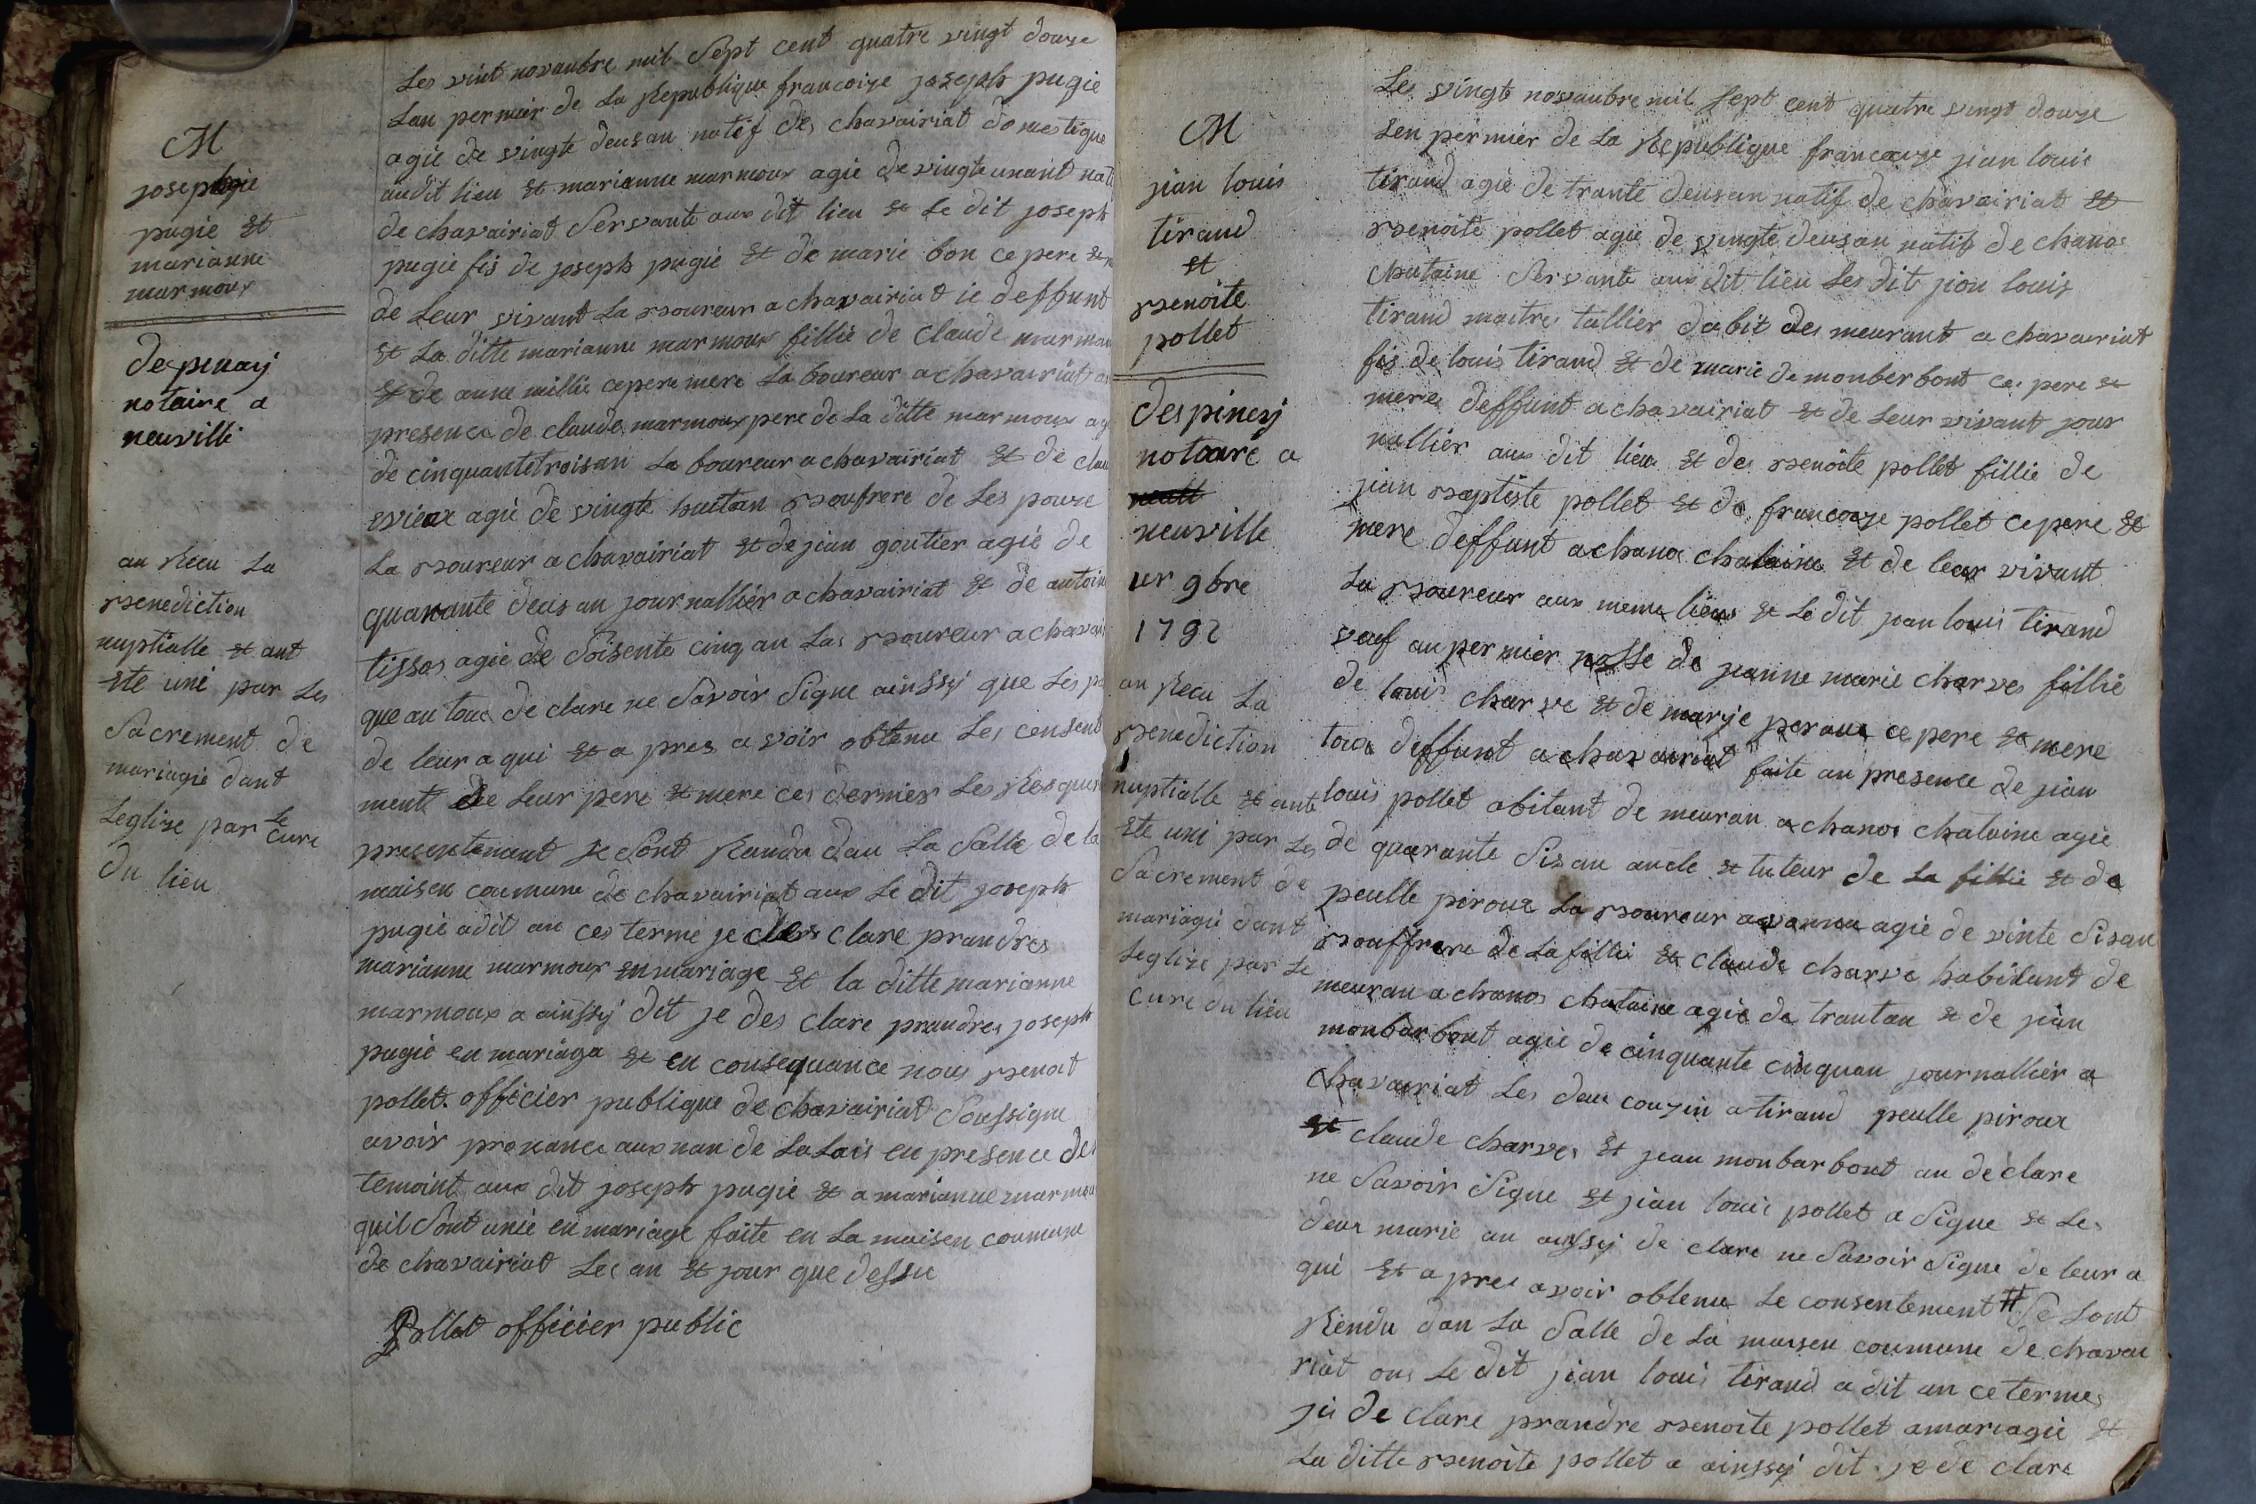 M
joseptgie
pugie et
marianne
marmoux
despinay
notaire a
neuville
an Recu La
Benediction
nuptialle et ant
ete uni par Les
Sacrement de
mariagie dant
Leglize par Le
Cure
Du lieu
Les vint novanbre mil Sept cent quatre vingt douze
Lan permier de La Republique francoize joseph pugie
agie de vingte deus an natif des chavairiat domestique
audit lieu et marianne marmoux agie de vingte unant nati
de chavairiat Servante aux dit lieu et Le dit joseph
pugie fis de joseph pugie et de marie bon ce pere et
de Leur vivant La Boureur a chavairiat ie deffunt
et La ditte marianne marmoux fillie de claude marmou
et de anne millie ce pere mere La boureur a chavairiat
presence de claude marmoux pere de La ditte marmoux ag
de cinquante trois an La boureur a chavairiat et de clau
agie de vingte huit an Boufrere de Les pouze
La Boureur a chavairiat et de jian goutier agie de
quarante deus an journallier a chavairiat et de antoin
tissos agie de Soisente cinq an Las Boureur a chavai
que an tous de clare ne Savoir Signe ainssy que Les
de leur a qui et a pres a voir obtenu Les censent
ment de Leur pere et mere ces dernier Les Resquer
presentenant se Sont Randu dau La Salle de la
maisen coumune de chavairiat aux Le dit joseph
pugie a dit an ces terme je des clare prandres
marianne marmoux en mariage et la ditte marianne
marmoux a ainssy dit je des clare prandres joseph
pugie en mariaga et en consequance nous Benoit
pollet officier publique de chavairiat Soussigne
avoir pronance aux nan de La Lois en presence des
temoint aux dit joseph pugie et a marianne marmou
quil Sont unie en mariage faite en La maisen coumune
de chavairiat Les an et jour que dessu
Pollet officier public
M
jian louis
tirand
et
Benoite
pollet
despinay
notaire a
neuville
ur 9bre
1792
an Recu La
Benediction
nuptialle et ant
ete uni par Les
Sacrement de
mariagie dant
Leglize par Le
Cure du lieu
Les vingte novanbre mil Sept cent quatre vingt douze
Len permier de La Republique francoize jian louis
tirand agie de trante deus an natif de chavairiat et
Benoite pollet agie de vingte deus an natif de chanos
chataine Servante aux dit lieu Les dit jian louis
tirand maitres tallier dabit des meurant a chavairiat
fis de louis tirand et de marie de monberbont ce pere et
mere deffunt a chavairiat et de Leur vivant jour
nallier aux dit lieu et des Benoite pollet fillie de
jian Baptiste pollet et de francoize pollet ce pere et
mere deffunt a chanos chataine et de leur vivant
La Boureur aux meme lieu et Le dit jian louis tirand
veuf au permier nosse de jeanne marie charves fillie
de louis charve et de marye ce pere et mere
tous deffunt a chavairiat faite an presence de jian
louis pollet abitant de meuran a chanos chataine agie
de quarante Sis an ancle et tuteur de La fillie et de
peulle piroux La Boureur a agie de vinte Sis an
Bouffrere de La fillie et claude charve habitant de
meuran a chanos chataine agie de trantan et de jian
monbarbont agie de cinquante cinquan journallier a
chavairiat Les deux couzin a tirand peulle piroux
et claude charves et jean monbarbont an de clare
ne Savoir Signe et jian louis pollet a Signe et Les
deux marie an aussy de clare ne Savoir Signe de leur a
qui et a pres avoir obtenu Le consentement # Se Sont
Rendu dan La Salle de La maisen coumune de chavai
riat ous Le dit jian louis tirand a dit an ce termes
je de clare prandre Benoite pollet a mariagie et
La ditte Benoite pollet a ainssy dit je de clare